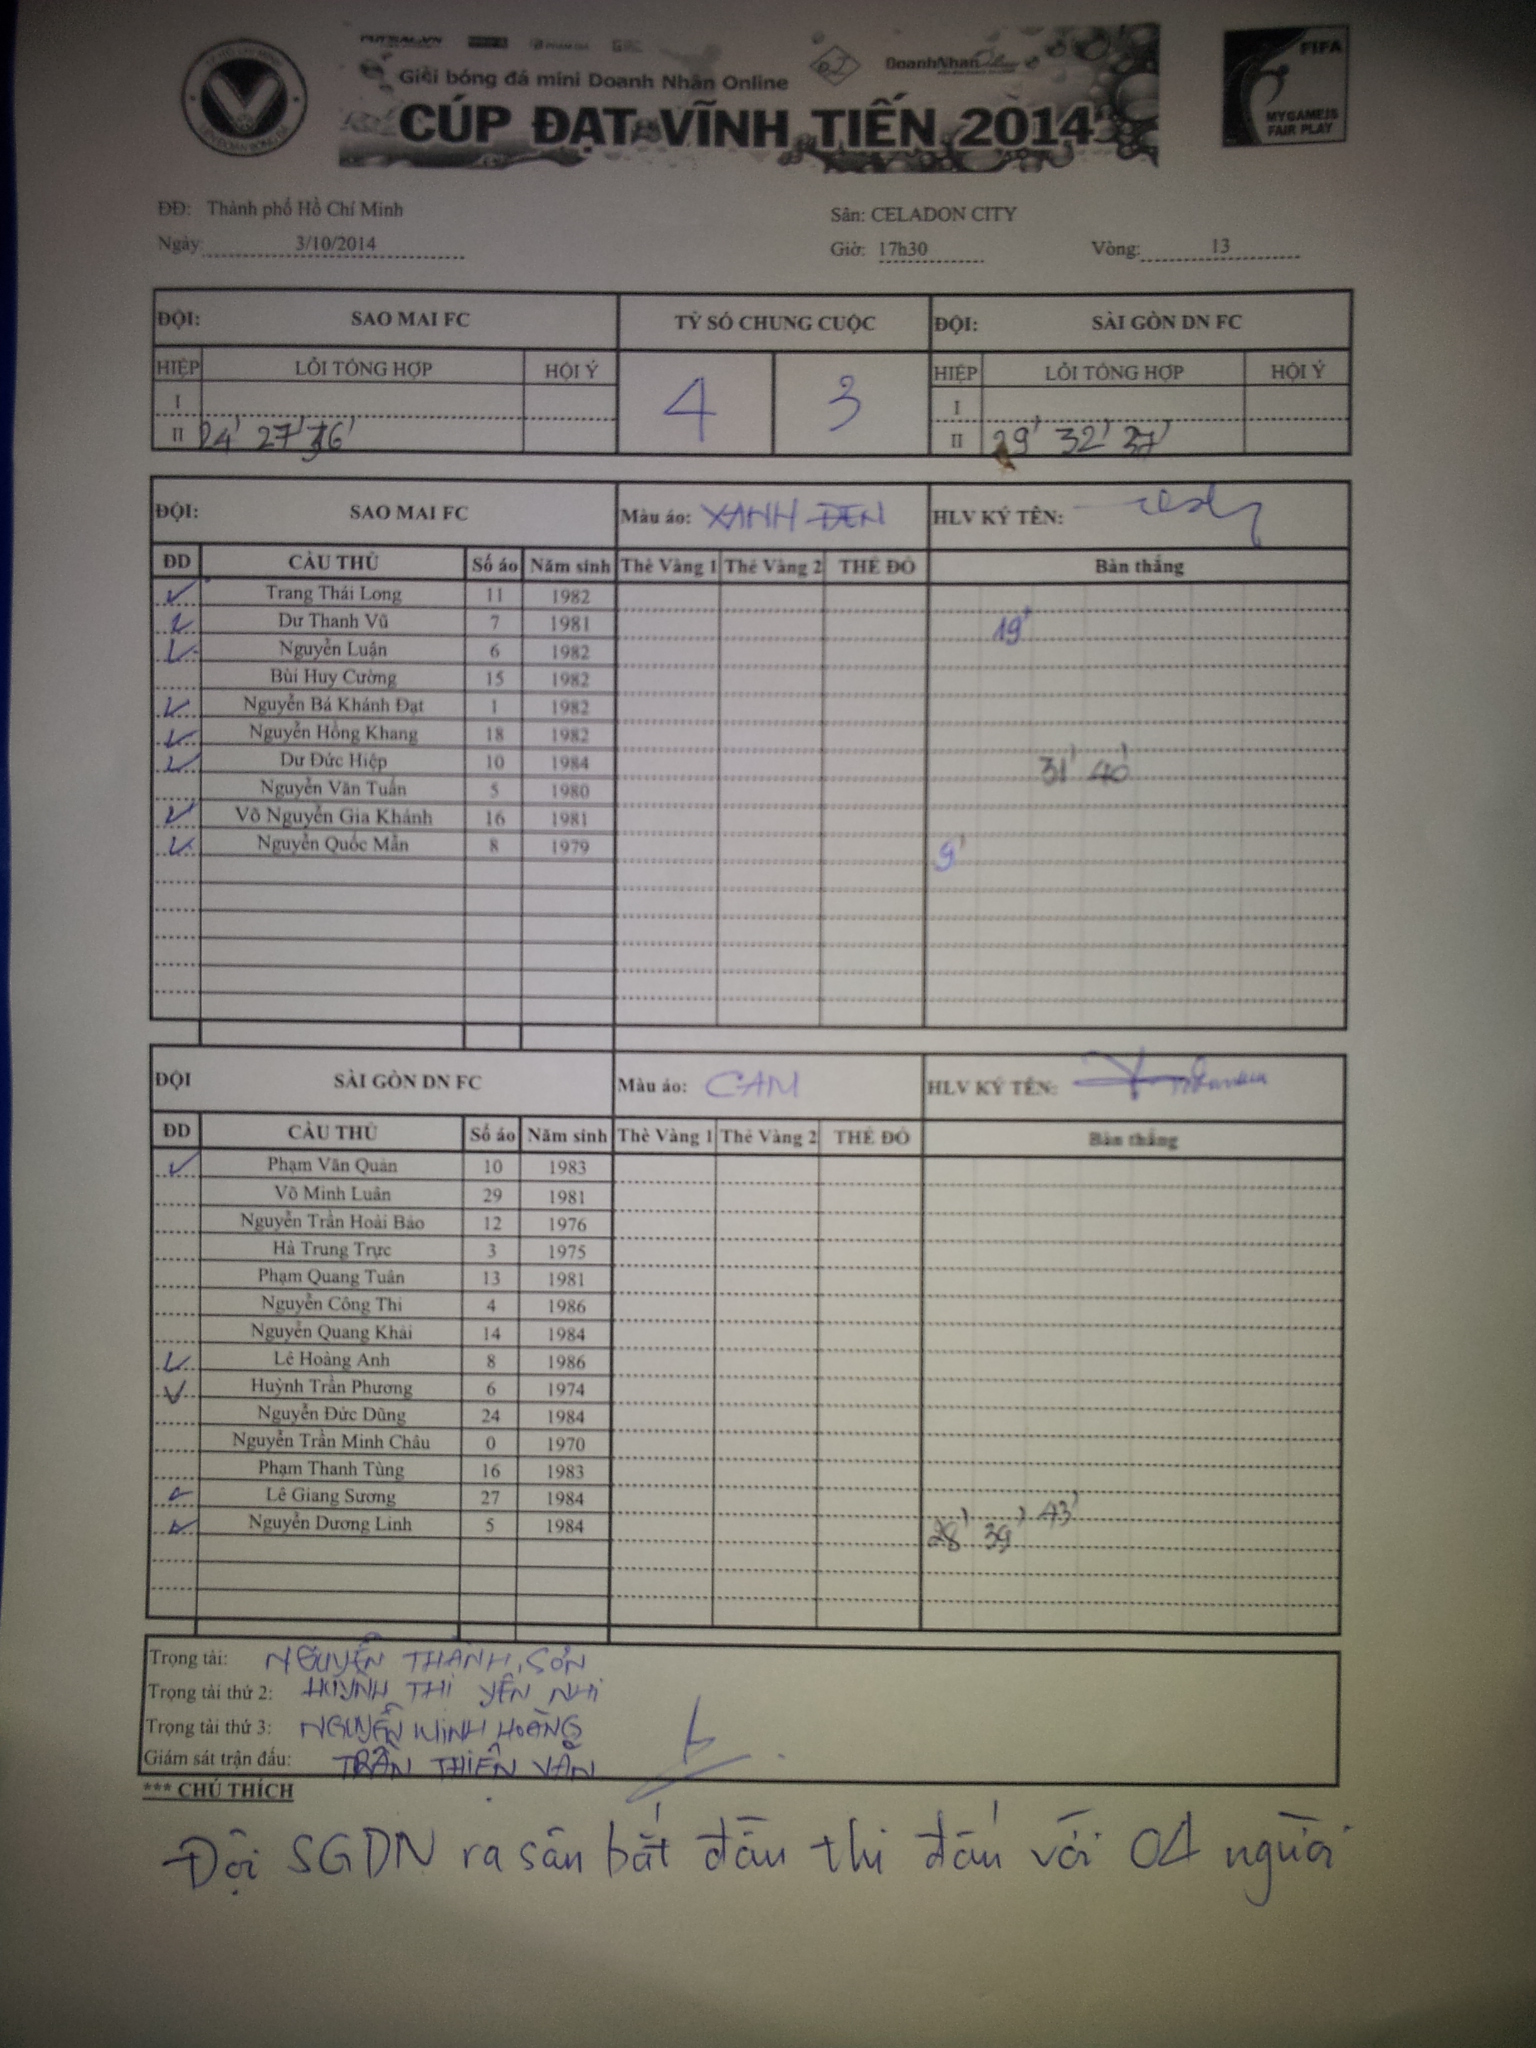 Giải bóng đá mini Doanh Nhân Online
CÚP ĐẠT VĨNH TIẾN 2014
FIFA
MY GAME IS
FAIR PLAY
ĐĐ: Thành phố Hồ Chí Minh Sân: CELADON CITY
Ngày 3/10/2014 Giờ: 17h30 Vòng: 13
ĐỘI: SAO MAI FC TỶ SỐ CHUNG CUỘC ĐỘI: SÀI GÒN DN FC
HIỆP LỖI TỔNG HỢP HỘI Ý 4 3 HIỆP LỖI TỔNG HỢP HỘI Ý
I I
II 24' 27' 36' II 29' 32' 37'
ĐỘI: SAO MAI FC Màu áo: XANH ĐEN HLV KÝ TÊN:
ĐD CẦU THỦ Số áo Năm sinh Thẻ Vàng 1 Thẻ Vàng 2 THẺ ĐỎ Bàn thắng
Trang Thái Long 11 1982
Dư Thanh Vũ 7 1981 19'
Nguyễn Luận 6 1982
Bùi Huy Cường 15 1982
Nguyễn Bá Khánh Đạt 1 1982
Nguyễn Hồng Khang 18 1982
Dư Đức Hiệp 10 1984 31' 40'
Nguyễn Văn Tuấn 5 1980
Võ Nguyễn Gia Khánh 16 1981
Nguyễn Quốc Mẫn 8 1979 9'
ĐỘI SÀI GÒN DN FC Màu áo: CAM HLV KÝ TÊN:
ĐD CẦU THỦ Số áo Năm sinh Thẻ Vàng 1 Thẻ Vàng 2 THẺ ĐỎ Bàn thắng
Phạm Văn Quản 10 1983
Võ Minh Luân 29 1981
Nguyễn Trần Hoài Bảo 12 1976
Hà Trung Trực 3 1975
Phạm Quang Tuân 13 1981
Nguyễn Công Thi 4 1986
Nguyễn Quang Khải 14 1984
Lê Hoàng Anh 8 1986
Huỳnh Trần Phương 6 1974
Nguyễn Đức Dũng 24 1984
Nguyễn Trần Minh Châu 0 1970
Phạm Thanh Tùng 16 1983
Lê Giang Sương 27 1984
Nguyễn Dương Linh 5 1984 28' 39' 43'
Trọng tài: NGUYỄN THÀNH SƠN
Trọng tài thứ 2: HUỲNH THỊ YẾN NHI
Trọng tài thứ 3: NGUYỄN MINH HOÀNG
Giám sát trận đấu: TRẦN THIỆN VĂN
*** CHÚ THÍCH
Đội SGDN ra sân bắt đầu thi đấu với 04 người